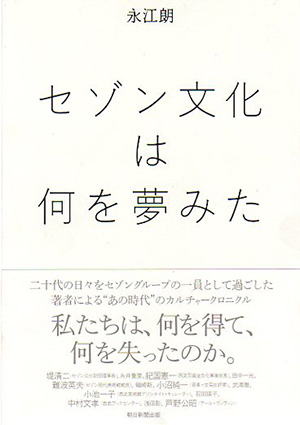 永江朗
セゾン文化
は
何を夢みた
二十代の日々をセゾングループの一員として過ごした
著者による“あの時代”のカルチャークロニクル
私たちは、何を得て、
何を失ったのか。
堤清二 紀国憲一 田中一光、
難波英夫 小沼純一
小池一子
中村文孝 芦野公昭
朝日新聞出版